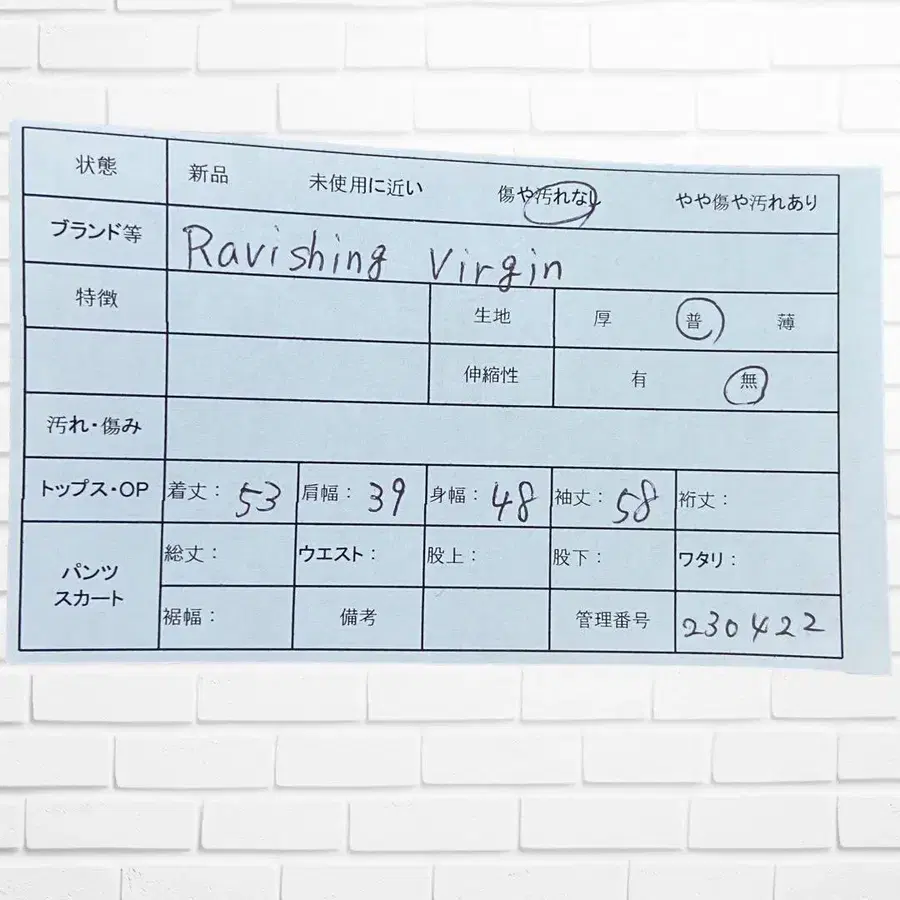 状態 新品 未使用に近い 傷や汚れなし やや傷や汚れあり
ブランド等 Ravishing Virgin
特徴 生地 厚 普 薄
伸縮性 有 無
汚れ・傷み
トップス・OP 着丈： 53 肩幅： 39 身幅： 48 袖丈： 58 裄丈：
パンツ スカート 総丈： ウエスト： 股上： 股下： ワタリ：
裾幅： 備考 管理番号 230422